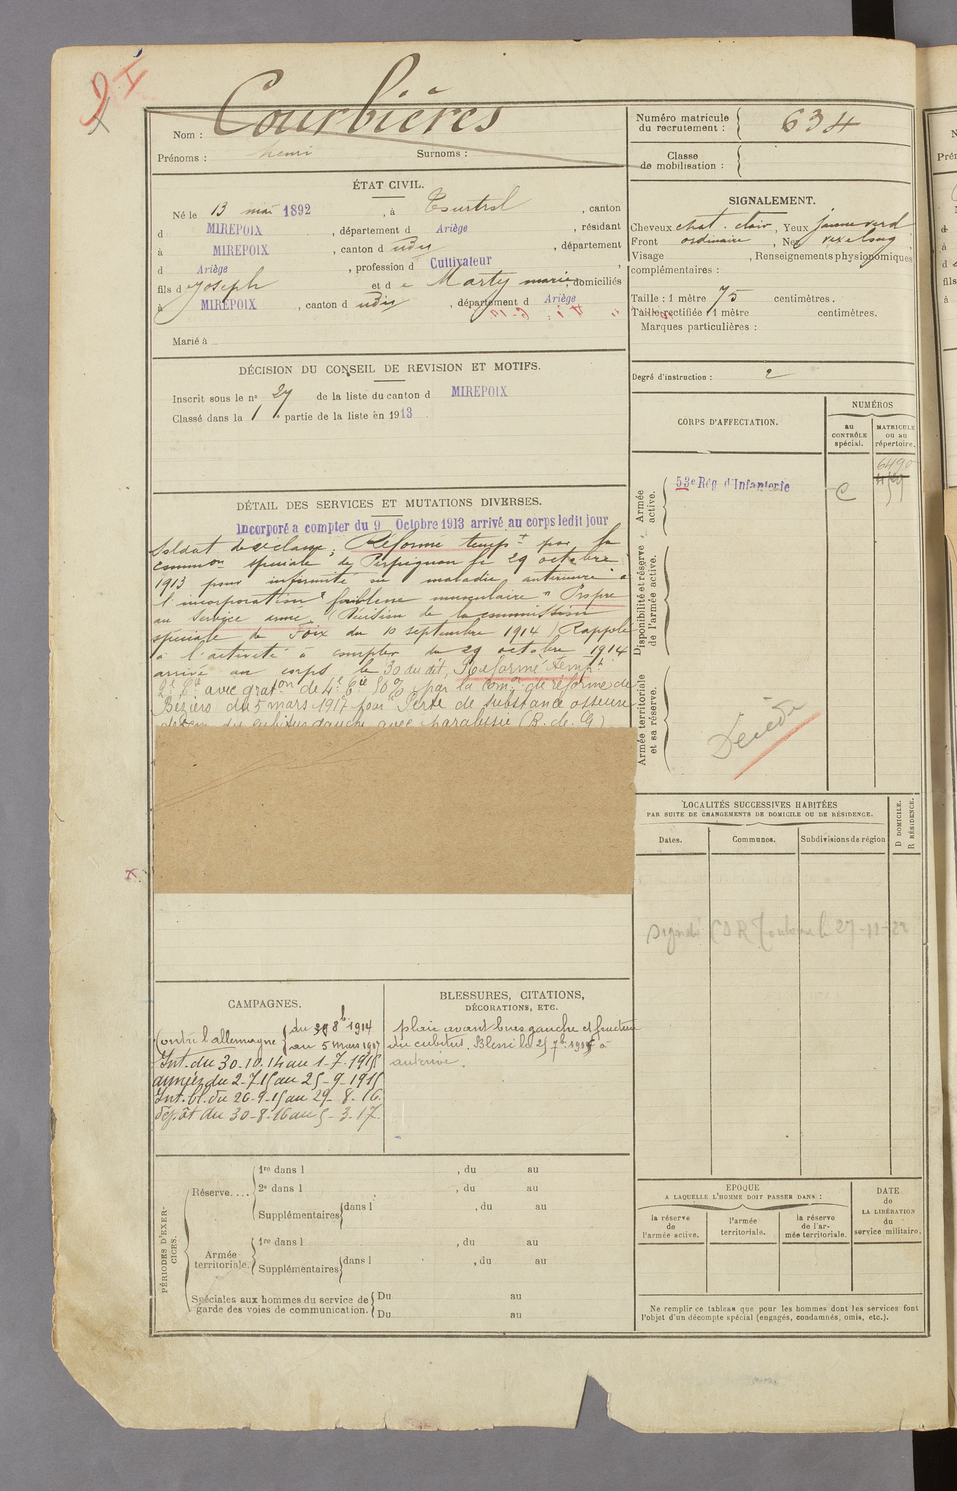 Courbières
Nom :
Prénoms : henri Surnoms :
Numéro matricule
du recrutement : 634
Classe
de mobilisation :
ÉTAT CIVIL.
Né le 13 mai 1892, à Tourtrol, canton
d MIREPOIX, département d Ariège, résidant
à MIREPOIX, canton d udis, département
d Ariège, profession d Cultivateur,
fils d Joseph et d e Marty marie, domiciliés
à MIREPOIX, canton d udis, département d Ariège
Marié à
SIGNALEMENT.
Cheveux chat. clair, Yeux jaune verd
Front ordinaire, Nez vexe long,
Visage , Renseignements physionomiques
complémentaires :
Taille : 1 mètre 75 centimètres.
Taille rectifiée 1 mètre centimètres.
Marques particulières :
Degré d'instruction : 2
DÉCISION DU CONSEIL DE REVISION ET MOTIFS.
Inscrit sous le nº 27 de la liste du canton d MIREPOIX
Classé dans la 1 partie de la liste en 1913
CORPS D'AFFECTATION.
NUMÉROS
au
CONTRÔLE
spécial.
MATRICULE
ou au
répertoire.
6490
Armée
active.
53e Rég d'Infanterie
C
Disponibilité et réserve
de l'armée active.
Armée territoriale
et sa réserve.
Décédé
DÉTAIL DES SERVICES ET MUTATIONS DIVERSES.
Incorporé a compter du 9 Octobre 1913 arrivé au corps ledit jour
Soldat de 2e classe, Réformé tempt par la
common spéciale de Perpignan le 29 octobre
1913 pour infirmité ou maladie antérieure à
l'incorporation "faiblesse musculaire" Propre
au service armé. (Décision de la commission
spéciale de Foix du 10 septembre 1914) Rappelé
à l'activité à compter du 29 octobre 1914
arrivé au corps le 30 du dit, Réformé temp.t
2e Cie avec graton de 4e Cie 80% par la Comon de réforme de
Béziers du 5 mars 1917 pour "Perte de substance osseuse
du cubitus gauche avec paralysie (B. de G)
LOCALITÉS SUCCESSIVES HABITÉES
PAR SUITE DE CHANGEMENTS DE DOMICILE OU DE RÉSIDENCE.
Dates. Communes. Subdivisions de région
D DOMICILE.
R RÉSIDENCE.
Signalé CDR Toulouse le 27-11-22
CAMPAGNES.
Contre l'allemagne du 29 8b 1914
au 5 mars 1917
Int. du 30.10.14 au 1-7.1915
armées du 2-7-15 au 25-9-1915
Int. bl. du 26-9-15 au 29-8-16.
dépôt du 30-8-16 au 5-3.17.
BLESSURES, CITATIONS,
DÉCORATIONS, ETC.
plaie avant bras gauche et fracture
du cubitus. Blessé le 25 7b 1915 à
auberive.
PÉRIODES D'EXERCICES.
Réserve....
1re dans l , du au
2e dans l , du au
Supplémentaires dans l , du au
au
Armée
territoriale.
1re dans l , du au
Supplémentaires dans l , du au
Spéciales aux hommes du service de
garde des voies de communication.
Du au
Du au
EPOQUE
A LAQUELLE L'HOMME DOIT PASSER DANS :
la réserve
de
l'armée active.
l'armée
territoriale.
la réserve
de l'ar-
mée territoriale.
DATE
de
LA LIBÉRATION
du
service militaire.
Ne remplir ce tableau que pour les hommes dont les services font
l'objet d'un décompte spécial (engagés, condamnés, omis, etc.).